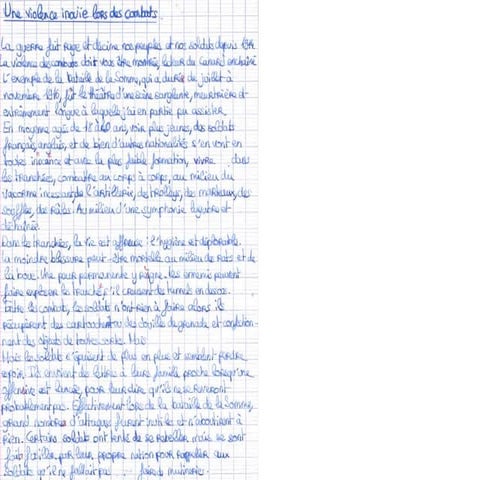 Une violence inouïe lors des combats.
La guerre fait rage et décime nos peuples et nos soldats depuis 1914.
La violence des combats doit vous être montrée, lecteur du Canard enchaîné
L'exemple de la bataille de la Somme, qui a durée de juillet à
novembre 1916, fût le théâtre d'une scène sanglante, meurtrière et
extrêmement longue à laquelle j'ai en partie pu assister.
En moyenne agés de 18 à 20 ans, voir plus jeunes, des soldats
français, anglais, et de bien d'autres nationalités s'en vont en
toutes et avec la plus faible formation, vivre dans
les tranchées, combattre au corps à corps, au milieu du
vacarme incessant de l'artillerie, des des marteaux, des
souffles, des râles. Au milieu d'une symphonie lugubre et
Dans les tranchées, la vie est affreuse : l'hygiène est déplorable.
La moindre blessure peut-être mortelle au milieu de rats et de
la boue. Une peur permanente y règne. Les ennemis peuvent
faire exploser la tranchée s'il creusent des tunnels en dessous.
Entre les combats, les soldats n'ont rien à faire alors ils
récupèrent des cartouches ou des douille de grenade et confection-
nent des objets de toutes sortes. Mais
Mais les soldats s'épuisent de plus en plus et semblent perdre
espoir. Ils envoient des lettres à leur famille proche lorsqu'une
offensive est lancée, pour leur dire qu'ils ne se reverront
probablement pas. Effectivement lors de la bataille de la Somme,
grand nombre d'attaques furent inutiles et n'aboutirent à
rien. Certains soldats ont tenté de se rebeller mais se sont
fait fusiller par leur propre nation pour rappeler aux
soldats qu'il ne fallait pas faire de mutinerie.